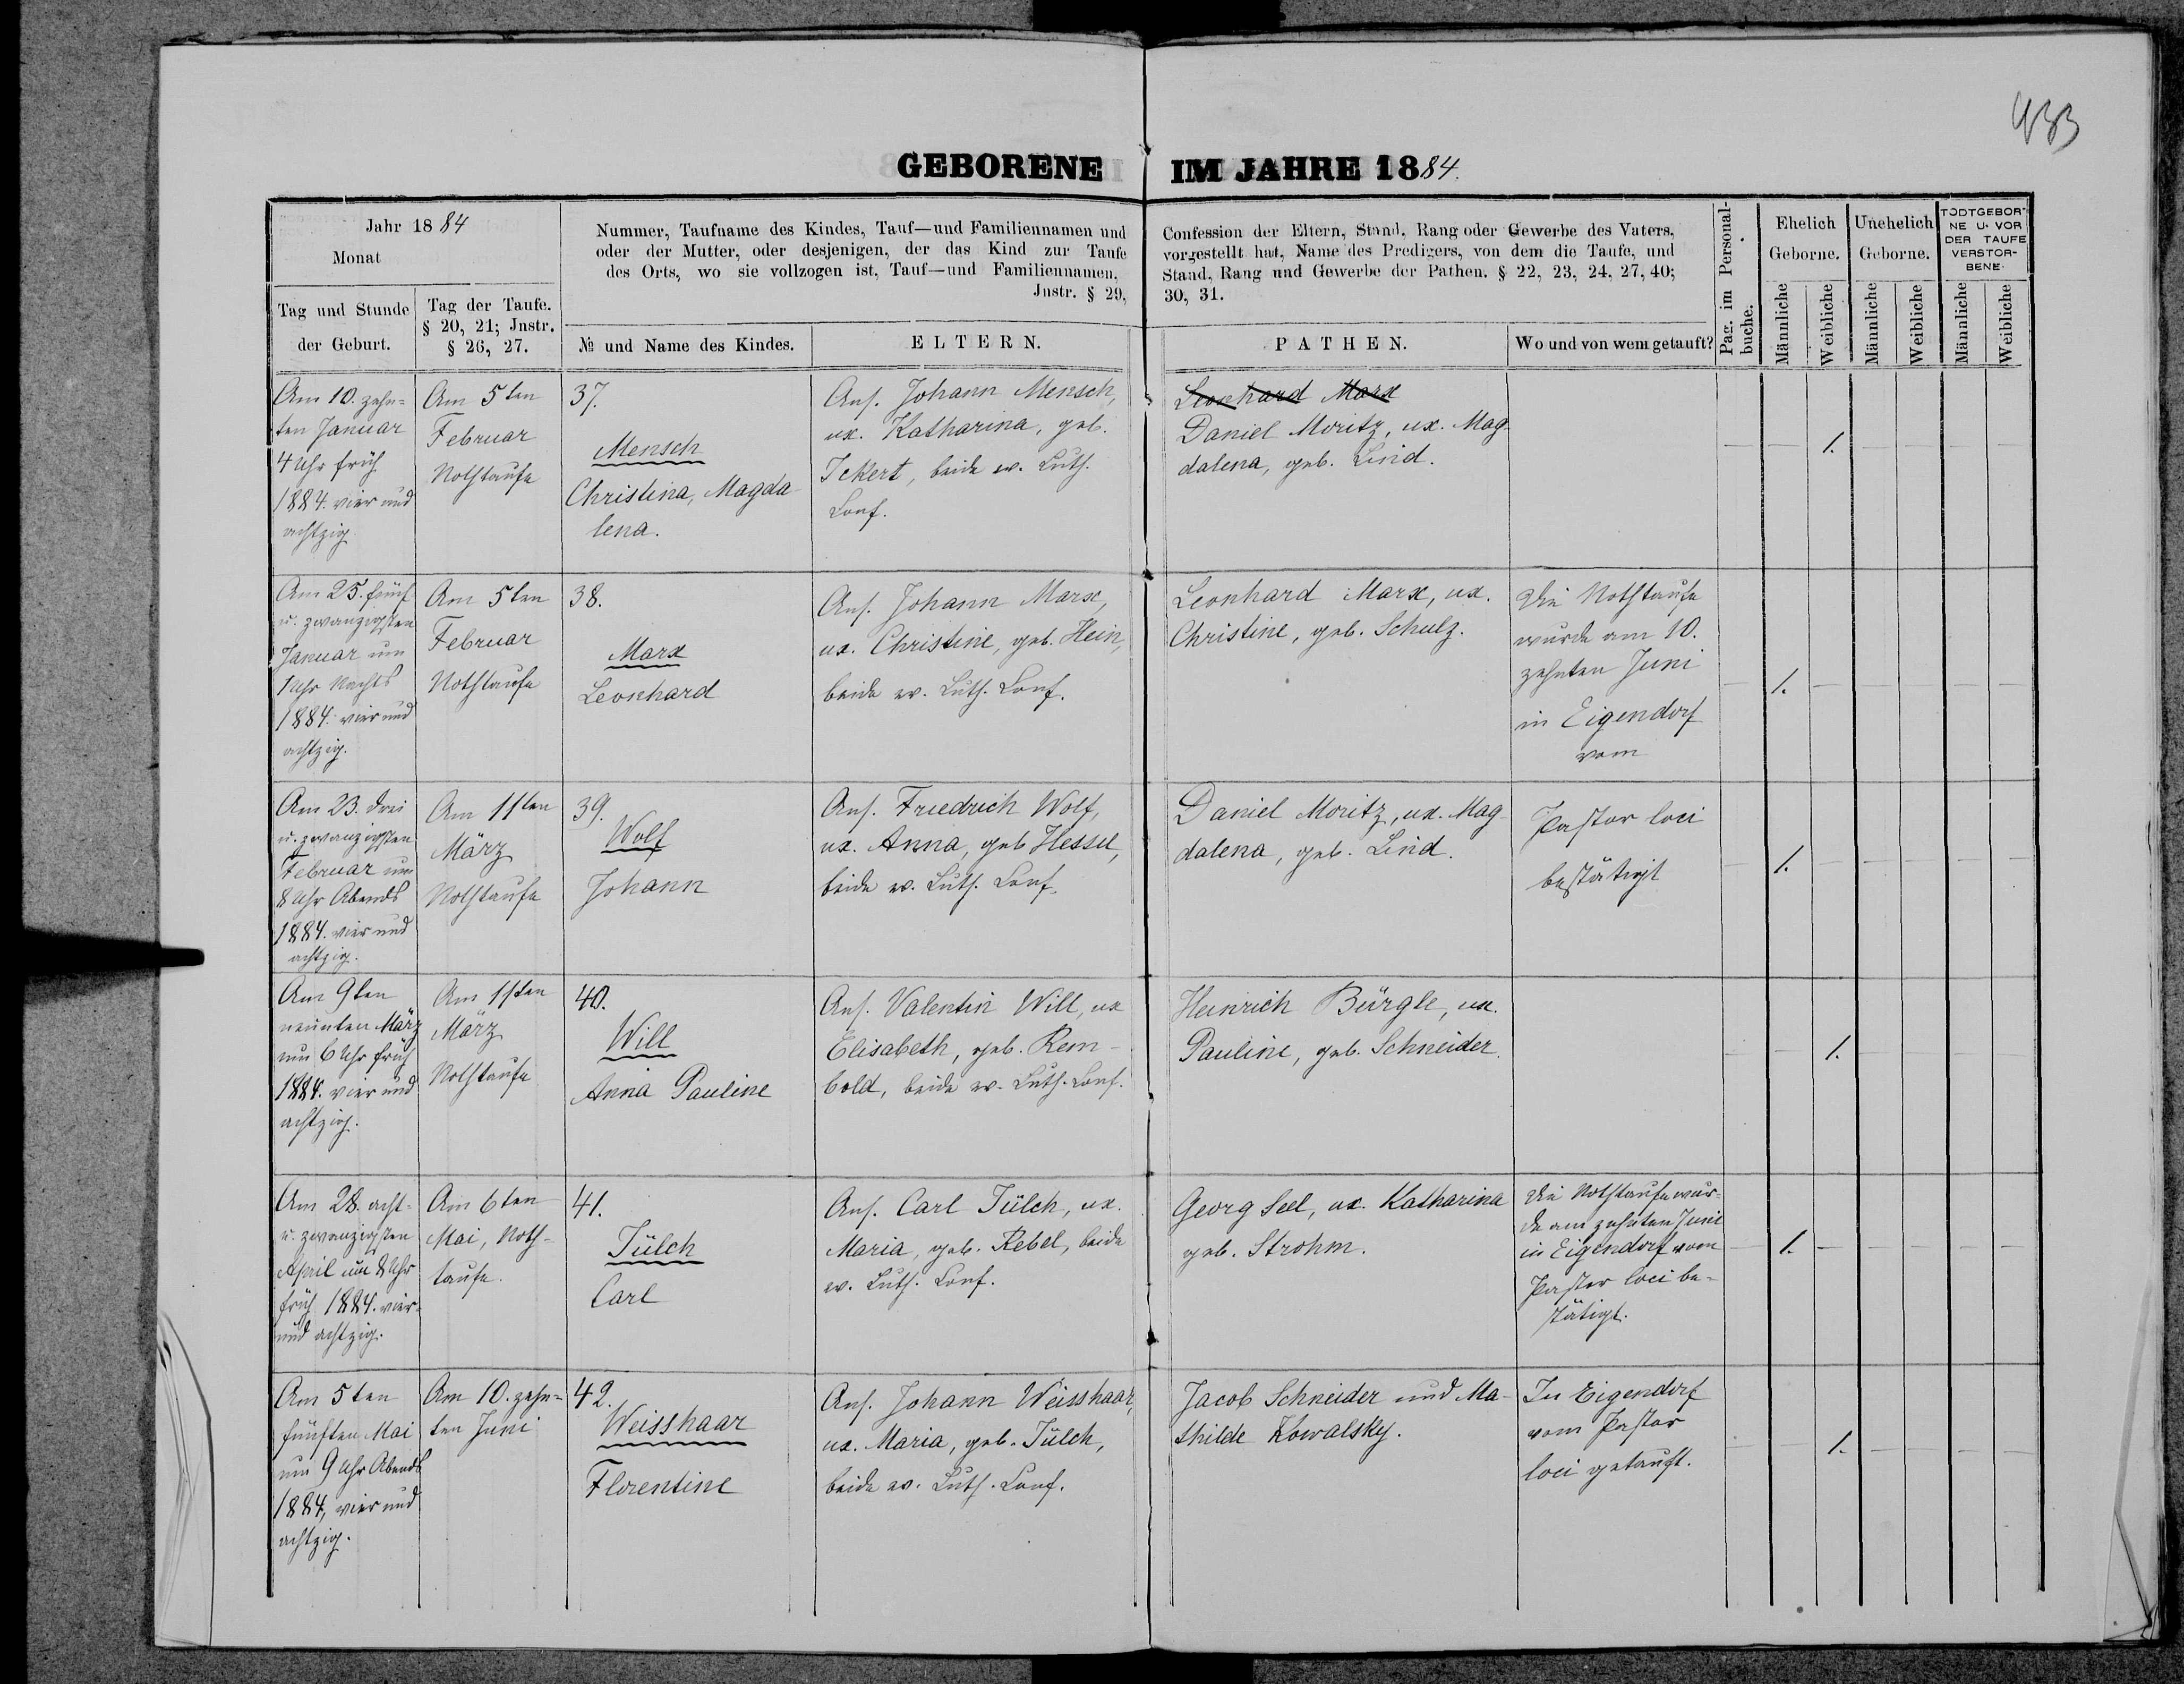 433
GEBORENE IM JAHRE 1884.
Jahr 1884
Monat
Tag und Stunde
der Geburt.
Tag der Taufe.
§ 20, 21; Jnstr.
§ 26, 27.
Nummer, Taufname des Kindes, Tauf—und Familiennamen und
oder der Mutter, oder desjenigen, der das Kind zur Taufe
des Orts, wo sie vollzogen ist, Tauf—und Familiennamen,
Jnstr. § 29,
№ und Name des Kindes.
ELTERN.
Confession der Eltern, Stand, Rang oder Gewerbe des Vaters,
vorgestellt hat, Name des Predigers, von dem die Taufe, und
Stand, Rang und Gewerbe der Pathen. § 22, 23, 24, 27, 40;
30, 31.
PATHEN.
Wo und von wem getauft?
Pag. im Personal-
buche.
Ehelich
Geborne.
Unehelich
Geborne.
TODTGEBOR-
NE U. VOR
DER TAUFE
VERSTOR-
BENE.
Männliche
Weibliche
Männliche
Weibliche
Männliche
Weibliche
Am 10. zehn=
ten Januar
4 Uhr früh
1884. vier und
achtzig
Am 5ten
Februar
Nothtaufe
37.
Mensch
Christina, Magda
lena.
Ans. Johann Mensch,
ux. Katharina, geb.
Ickert, beide ev. Luth.
Conf.
Leonhard Marx
Daniel Moritz, ux. Mag-
dalena, geb. Lind.
1.
Am 25. fünf
u. zwanzigsten
Januar um
1 Uhr Nachts
1884. vier und
achtzig.
Am 5ten
Februar
Nothtaufe
38.
Marx
Leonhard
Ans. Johann Marx,
ux. Christine, geb. Hein,
beide ev. Luth. Conf.
Leonhard Marx, ux.
Christine, geb. Schulz.
Die Nothtaufe
wurde am 10.
zehnten Juni
in Eigendorf
vom
1.
Am 23. drei
u. zwanzigsten
Februar um
8 Uhr Abends
1884. vier und
achtzig.
Am 11ten
März
Nothtaufe
39.
Wolf
Johann
Ans. Friedrich Wolf,
ux. Anna, geb Hessel,
beide ev. Luth. Conf.
Daniel Moritz, ux. Mag-
dalena, geb. Lind.
Pastor loci
bestätigt
1.
Am 9ten
neunten März
um 6 Uhr früh
1884. vier und
achtzig.
Am 11ten
März
Nothtaufe
40.
Will
Anna Pauline
Ans. Valentin Will, ux
Elisabeth, geb. Rem-
bold, beide ev. Luth. Conf.
Heinrich Bürgle, ux.
Pauline, geb. Schneider.
1.
Am 28. acht-
u. zwanzigsten
April um 8 Uhr
früh 1884. vier-
und achtzig.
Am 6ten
Mai, Noth-
taufe.
41.
Jülch
Carl
Ans. Carl Jülch, ux.
Maria, geb. Rebel, beide
ev. Luth. Conf.
Georg Seel, ux. Katharina
geb. Strohm.
Die Nothtaufe wur-
de am zehnten Juni
in Eigendorf vom
Pastor loci be-
stätigt.
1.
Am 5ten
fünften Mai
um 9 Uhr Abends
1884, vier und
achtzig.
Am 10. zehn=
ten Juni
42.
Weisshaar
Florentine
Ans. Johann Weisshaar,
ux. Maria, geb. Jülch,
beide ev. Luth. Conf.
Jacob Schneider und Ma-
thilde Kowalsky.
In Eigendorf
vom Pastor
loci getauft.
1.